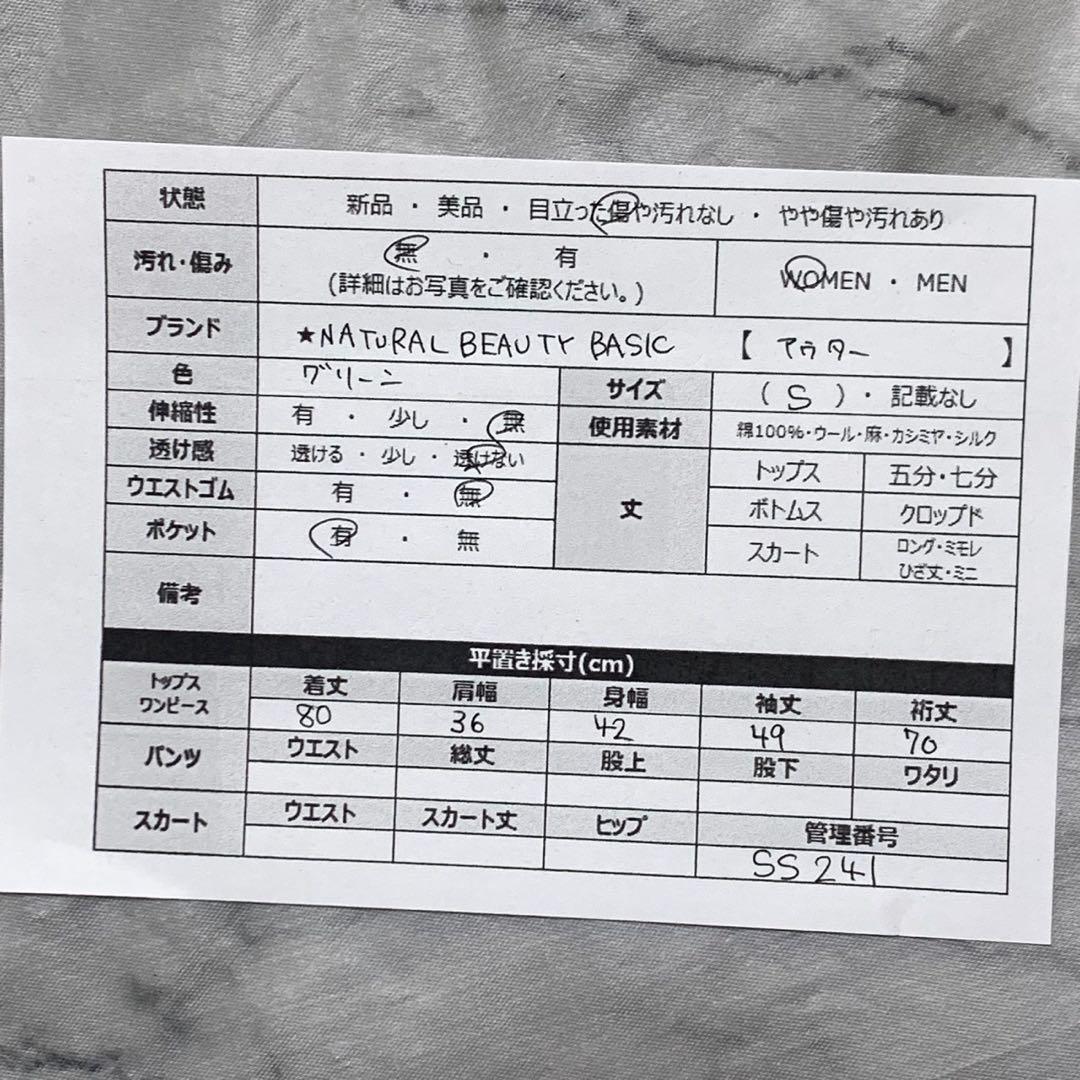 状態 新品 ・ 美品 ・ 目立った傷や汚れなし ・ やや傷や汚れあり
汚れ・傷み 無 ・ 有 WOMEN ・ MEN
(詳細はお写真をご確認ください。)
ブランド ★NATURAL BEAUTY BASIC 【 アウター 】
色 グリーン サイズ ( S ) ・ 記載なし
伸縮性 有 ・ 少し ・ 無 使用素材 綿100%・ウール・麻・カシミヤ・シルク
透け感 透ける ・ 少し ・ 透けない 丈 トップス 五分・七分
ウエストゴム 有 ・ 無 ボトムス クロップド
ポケット 有 ・ 無 スカート ロング・ミモレ
ひざ丈・ミニ
備考
平置き採寸(cm)
トップス ワンピース 着丈 肩幅 身幅 袖丈 裄丈
80 36 42 49 70
パンツ ウエスト 総丈 股上 股下 ワタリ
スカート ウエスト スカート丈 ヒップ 管理番号
SS241